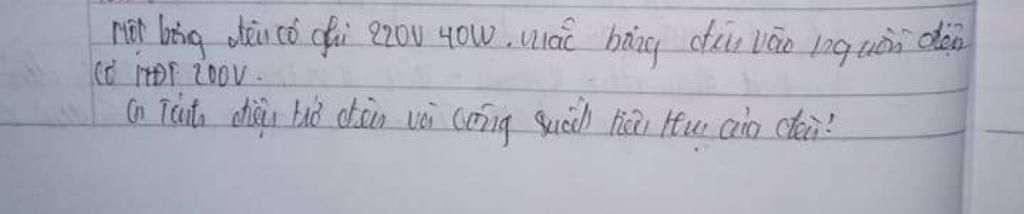 Một bóng đèn có ghi 220V 40W. Mắc bóng đèn vào nguồn điện
có HĐT 200V.
a) Tính điện trở đèn và công suất tiêu thụ của đèn?